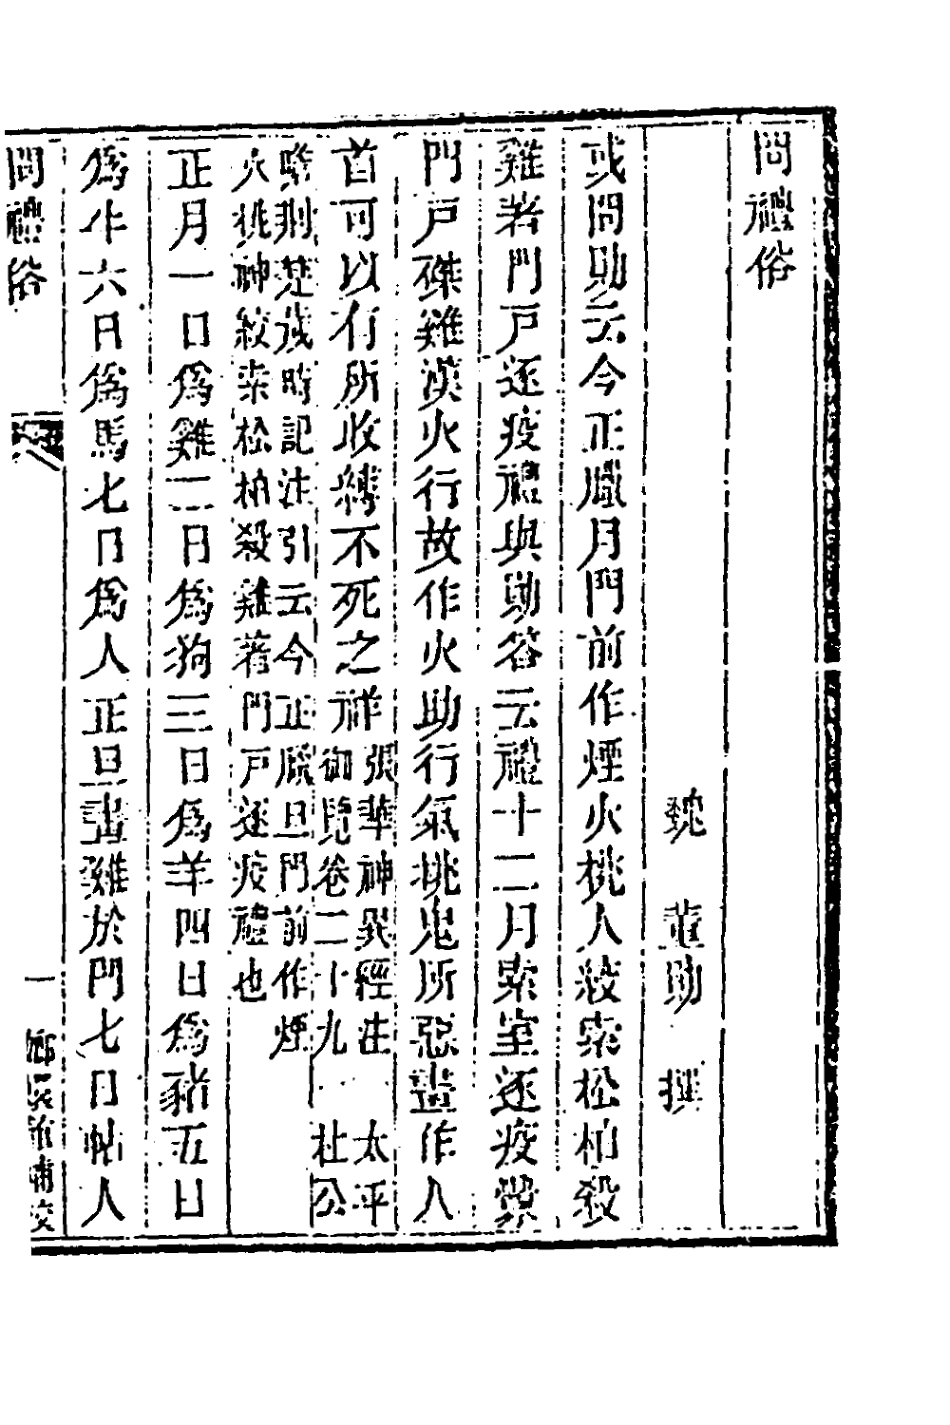 問禮俗
魏 董勛 撰
或問勛云今正臘月門前作煙火桃人絞索松柏殺
雞著門戶逐疫禮與勛答云禮十二月索室逐疫釁
門戶磔雞漢火行故作火助行氣桃鬼所惡畫作人
首可以有所收縛不死之祥張華神異經注 太平御覽卷二十九 杜公
瞻荆楚歲時記注引云今正臘旦門前作煙火桃神絞索松柏殺雞著門戶逐疫禮也
正月一日爲雞二日爲狗三日爲羊四日爲豬五日
爲牛六日爲馬七日爲人正旦畫雞於門七日帖人
問禮俗 一